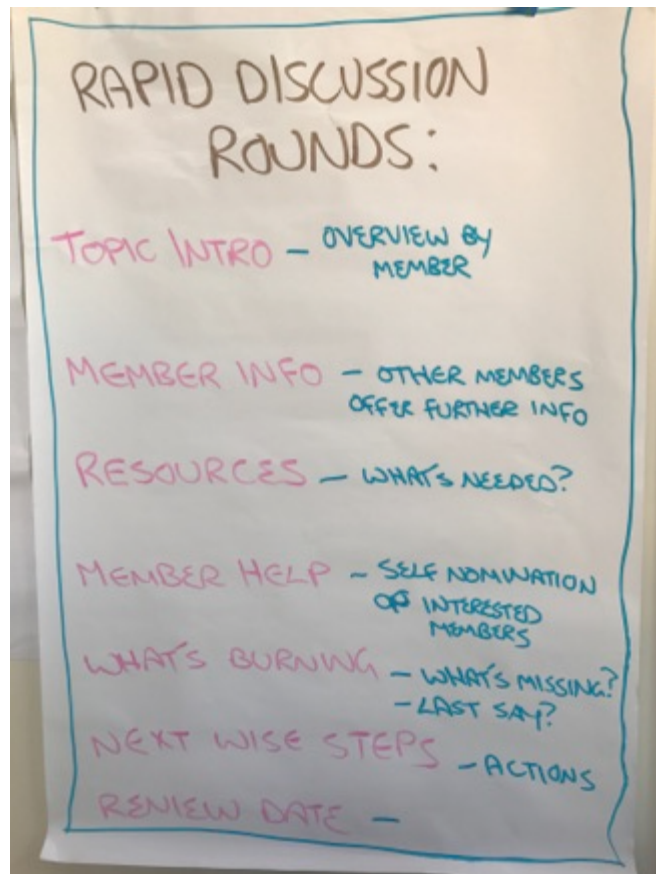 RAPID DISCUSSION
ROUNDS:
TOPIC INTRO – OVERVIEW BY
MEMBER
MEMBER INFO – OTHER MEMBERS
OFFER FURTHER INFO
RESOURCES – WHAT'S NEEDED?
MEMBER HELP – SELF NOMINATION
OF INTERESTED
MEMBERS
WHAT'S BURNING – WHAT'S MISSING?
– LAST SAY?
NEXT WISE STEPS – ACTIONS
REVIEW DATE –